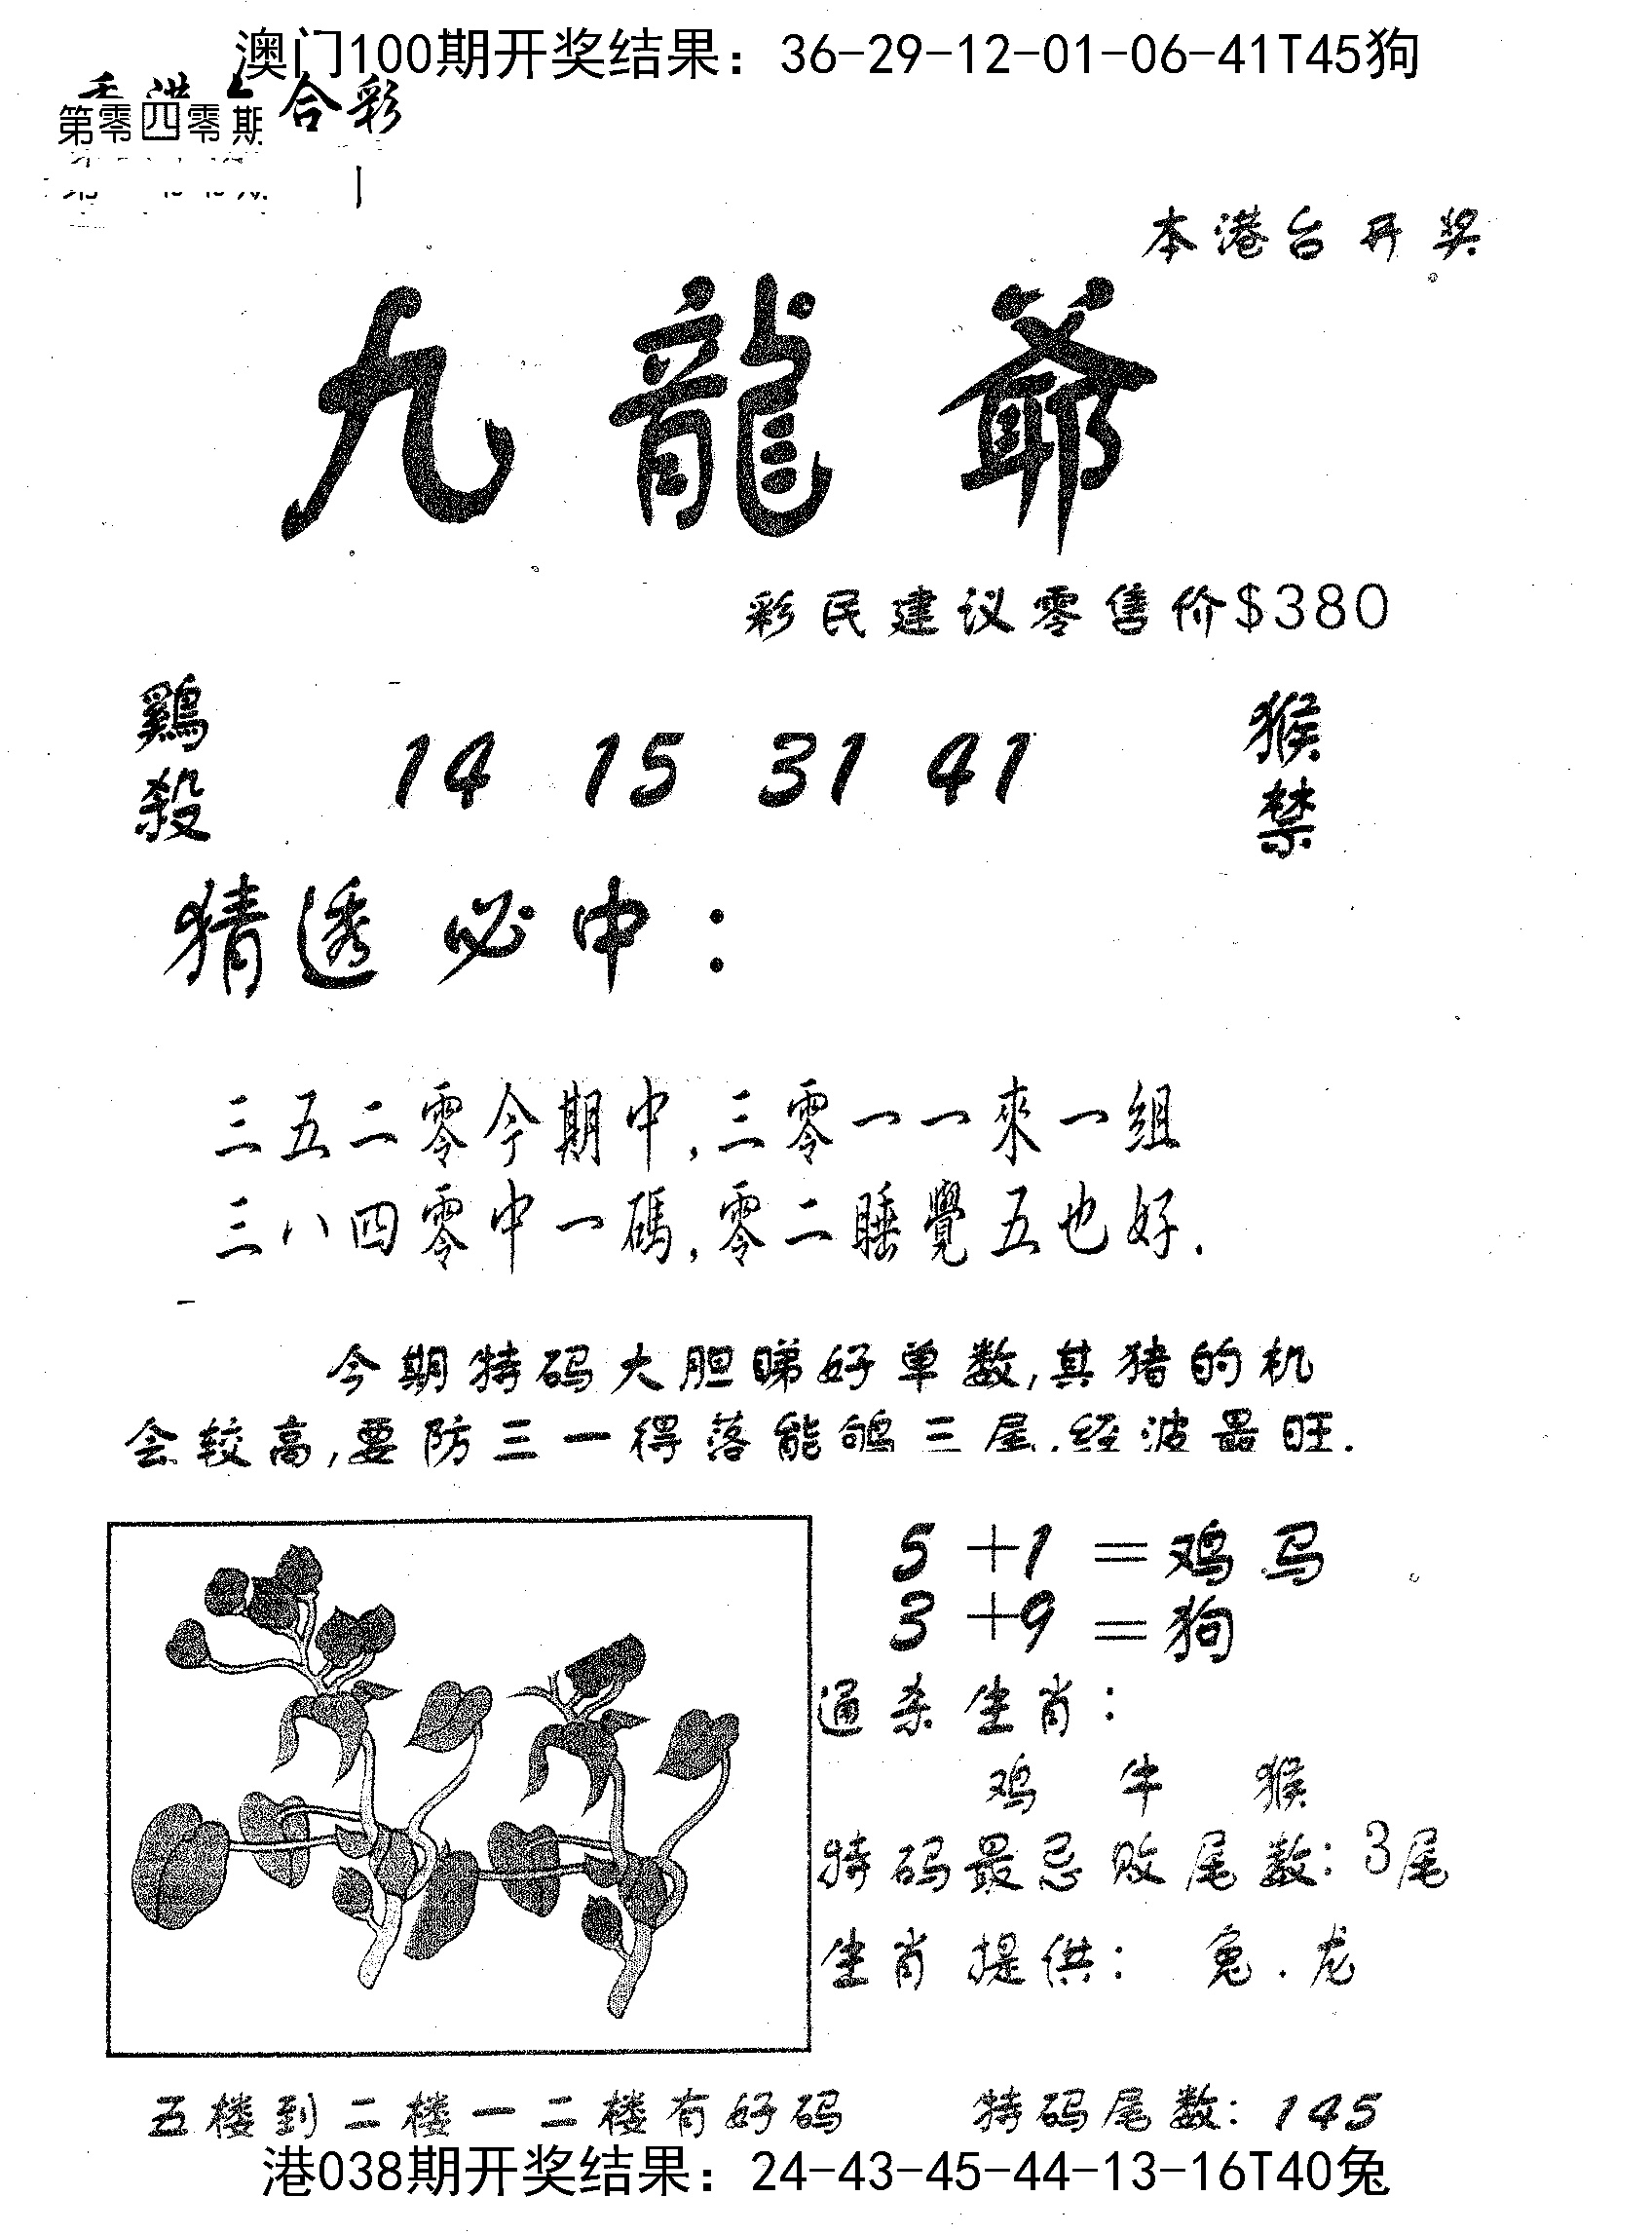 澳门100期开奖结果：36-29-12-01-06-41T45狗
合彩
第零四零期
本港台开奖
九龍爺
彩民建议零售价$380
鷄殺
14 15 31 41
猴禁
猜透必中：
三五二零今期中,三零一一來一组
三八四零中一碼,零二睡覺五也好.
今期特码大胆睇好单数,其猪的机
会较高,要防三一得落能够三尾.经波最旺.
5+1=鸡马
3+9=狗
通杀生肖：
鸡 牛 猴
特码最忌败尾数：3尾
生肖提供：兔.龙
五楼到二楼一二楼有好码 特码尾数：145
港038期开奖结果：24-43-45-44-13-16T40兔